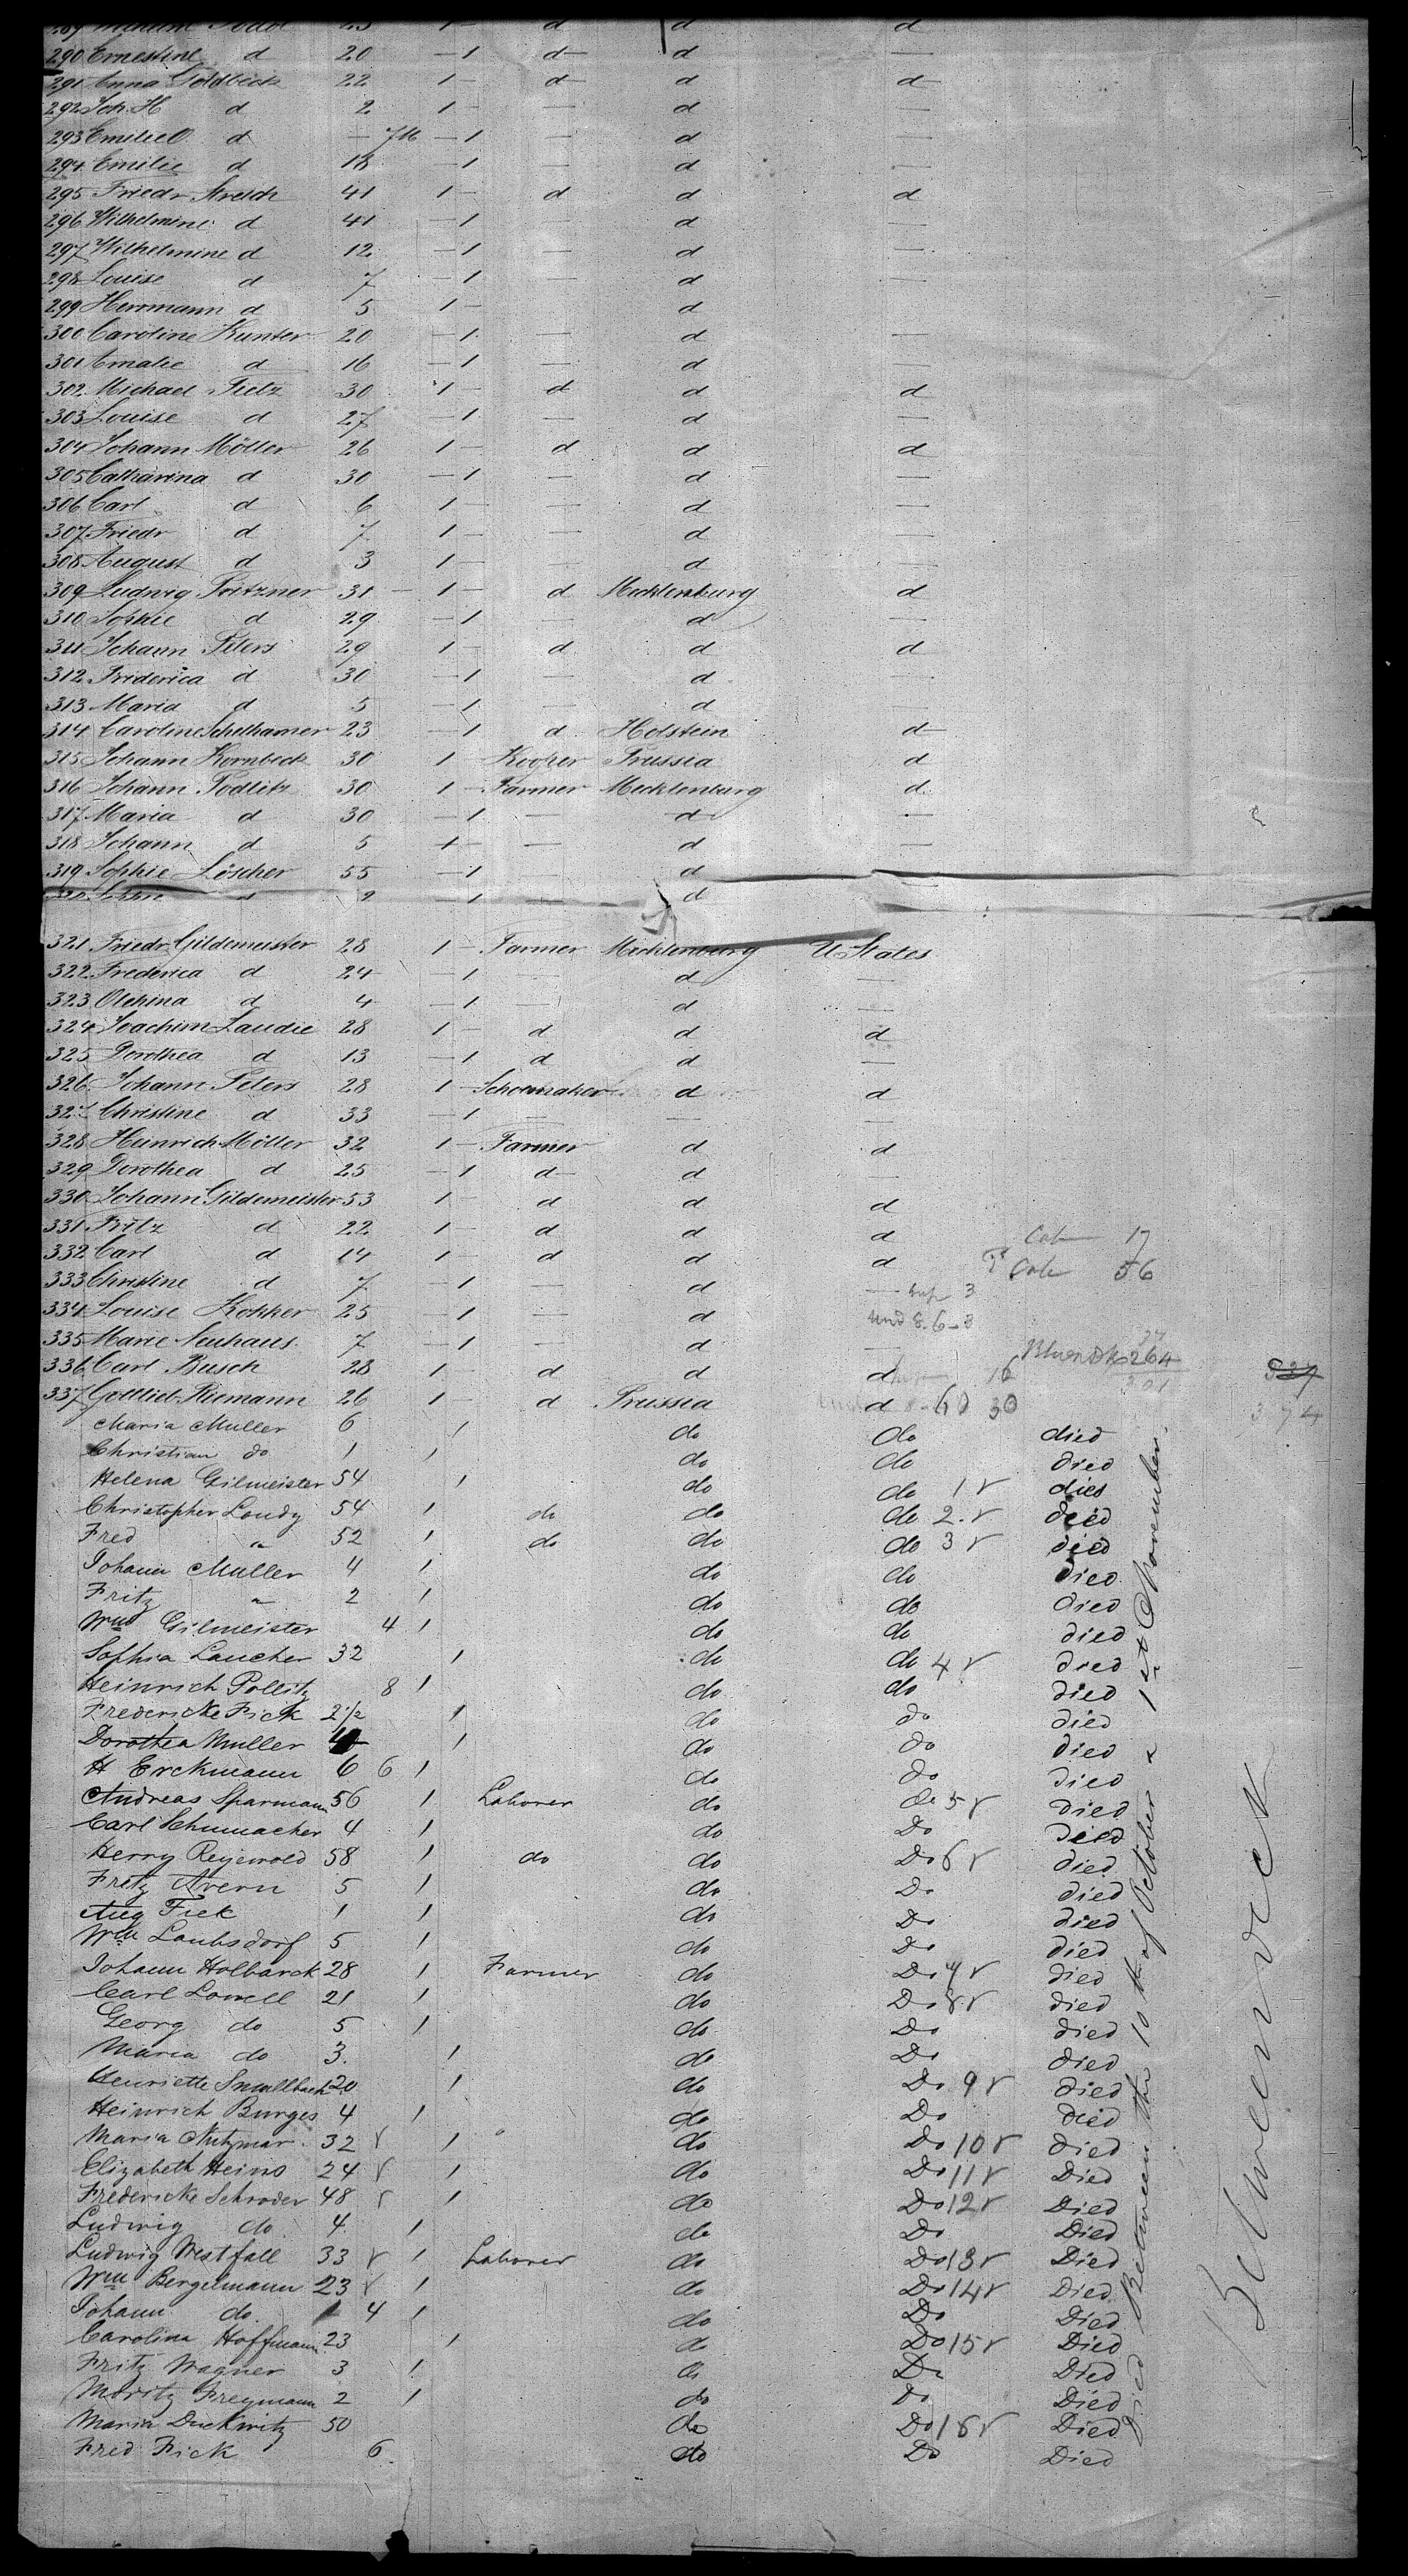 290 Ernestine d 20 — 1 d d —
291 Anna Goldbeck 22 1 — d d d
292 Joh. H d 2 1 — — d —
293 Emilie O. d — 7M — 1 — d —
294 Emilie d 18 — 1 — d —
295 Friedr 41 1 — d d d
296 Wilhelmine d 41 — 1 — d —
297 Wilhelmine d 12 — 1 — d —
298 Louise d 7 — 1 — d —
299 Herrmann d 5 1 — d
300 Caroline Kunter 20 — 1 — d —
301 Amalie d 16 — 1 — d —
302 Michael Tietz 30 1 — d d d
303 Louise d 27 — 1 — d —
304 Johann Möller 26 1 — d d d
305 Catharina d 30 — 1 — d —
306 Carl d 6 1 — — d —
307 Friedr d 7 1 — — d —
308 August d 3 1 — — d —
309 Ludwig Pritzner 31 — 1 — d Mecklenburg d
310 Sophie d 29 — 1 — d —
311 Johann Peters 29 1 — d d d
312 Friderica d 30 — 1 — d —
313 Maria d 5 — 1 — d —
314 Caroline Schelhamer 23 — 1 d Holstein d
315 Johann Kornbeck 30 1 — Kooper Prussia d
316 Johann Podlitz 30 1 — Farmer Mecklenburg d
317 Maria d 30 — 1 — d —
318 Johann d 5 1 — — d —
319 Sophie Löscher 55 — 1 — d
320 d 2 — 1 — d
321 Friedr. Gildemeister 28 1 — Farmer Mecklenburg U States
322 Frederica d 24 — 1 — d —
323 d 4 — 1 — d —
324 Joachim Laudie 28 1 — d d d
325 Dorothea d 13 — 1 d d —
326 Johann Peters 28 1 — Schoemaker d d
327 Christine d 33 — 1 — — —
328 Heinrich Möller 32 1 — Farmer d d
329 Dorothea d 25 — 1 d d —
330 Johann Gildemeister 53 1 — d d d
331 Fritz d 22 1 — d d d Cab 17
332 Carl d 14 1 — d d d Cab 56
333 Christine d 7 — 1 — d — 3
334 Louise Kokker 25 — 1 — d und 8. 6 – 3
335 Marie Neuhaus 7 — 1 — d —
336 Carl Busch 28 1 — d d d 16 264 527
337 Gottlieb Riemann 26 1 — d Prussia d 30 374
Maria Muller 6 1 do do died
Christian do 1 1 do do died
Helena Gilmeister 54 1 do do 1 died
Christopher Loudy 54 1 do do do 2. died
Fred " 52 1 do do do 3 died
Johann Muller 4 1 do do died
Fritz " 2 1 do do died
Wm Gilmeister 4 1 do do died
Sophia Laucher 32 1 do do 4 died
Heinrich Pollitz 8 1 do do died
Fredericke Fick 2 1/2 1 do do died
Dorothea Muller 1 do do died
H Erckmann 6 6 1 do do died
Andreas Sparmann 56 1 Laborer do do 5 died
Carl Schumacher 4 1 do Do died
Henry Reyewold 58 1 do do Do 6 died
Fritz Avern 5 1 do Do died
Aug Fick 1 1 do Do died
Wm Laubsdorf 5 1 do Do died
Johann Holbarck 28 1 Farmer do Do 7 died
Carl Lowell 21 1 do Do 8 died
Georg do 5 1 do Do died
Maria do 3. 1 do Do died
Henriette Smallbach 20 1 do Do 9 died
Heinrich Burges 4 1 do Do died
Maria Nutzmar 32 1 do Do 10 died
Elizabeth Heins 24 1 do Do 11 Died
Fredericke Schroder 48 1 do Do 12 Died
Ludwig do 4 1 do Do Died
Ludwig Westfall 33 1 Laborer do Do 13 Died
Wm Bergelmann 23 1 do Do 14 Died
Johann do. 4 1 do Do Died
Carolina Hoffmann 23 1 do Do 15 Died
Fritz Wagner 3 1 do Do Died
Moritz Freymann 2 1 do Do Died
Maria Duckwitz 50 do Do 16 Died
Fred Fick 6. do Do Died
Died Between the 10th of October & 1st November.
Between deck